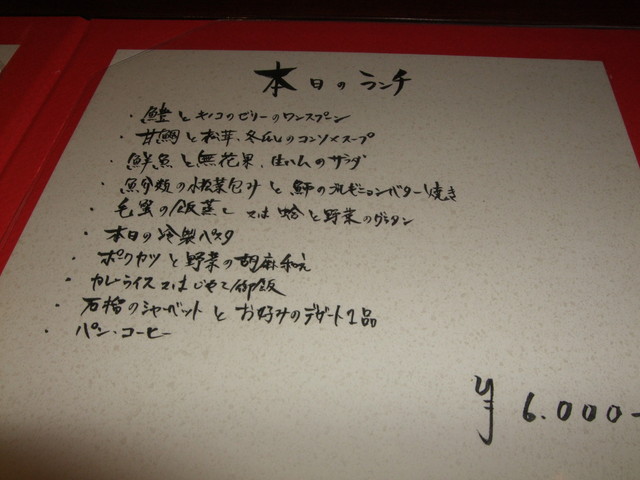 本日のランチ
・鱧とキノコのゼリーのワンスプーン
・甘鯛と松茸、冬瓜のコンソメスープ
・鮮魚と無花果、生ハムのサラダ
・魚介類の小松菜包みと鰤のブルギニョンバター焼き
・毛蟹の飯蒸し 又は 蛤と野菜のグラタン
・本日の冷製パスタ
・ポークカツと野菜の胡麻和え
・カレーライス又はじゃこ御飯
・石榴のシャーベットとお好みのデザート1品
・パン・コーヒー
¥6.000-